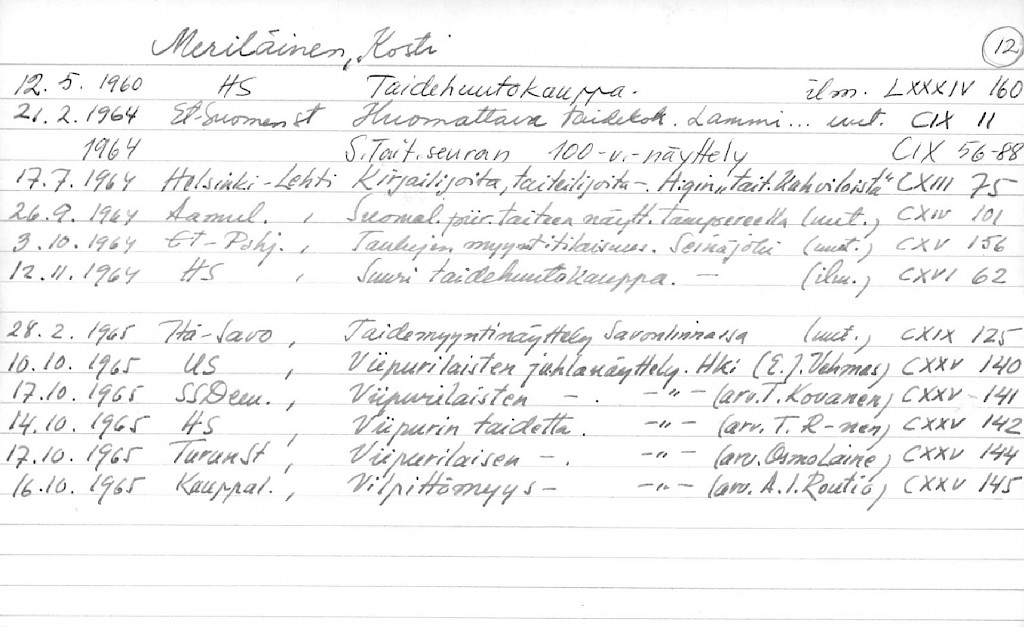 Meriläinen, Kosti 12
12.5.1960 HS Taidehuutokauppa. ilm. LXXXIV 160
21.2.1964 Et-Suomen st Huomattava taidekok. Lammi... uut. CIX 11
1964 S.Tait.seuran 100-v.-näyttely CIX 56-88
17.7.1964 Helsinki-Lehti Kirjailijoita, taiteilijoita -. H:gin "tait.kahviloista" CXIII 75
26.9.1964 Aamul. , Suomal. piir.taiteen näytt. Tampereella (uut.) CXIV 101
3.10.1964 Et-Pohj. , Taulujen myyntitilaisuus. Seinäjoki (uut.) CXV 156
12.11.1964 HS , Suuri taidehuutokauppa. - (ilm.) CXVI 62
28.2.1965 Itä-Savo , Taidemyyntinäyttely Savonlinnassa (uut.) CXIX 125
10.10.1965 US , Viipurilaisten juhlanäyttely. Hki (E.J.Vehmas) CXXV 140
17.10.1965 SSDem. , Viipurilaisten - . -"- (arv.T.Kovanen) CXXV - 141
14.10.1965 HS , Viipurin taidetta. -"- (arv. T. R-nen) CXXV 142
17.10.1965 TurunSt , Viipurilaisen - . -"- (arv.OsmoLaine) CXXV 144
16.10.1965 Kauppal. , Vilpittömyys - -"- (arv. A.I.Routio) CXXV 145